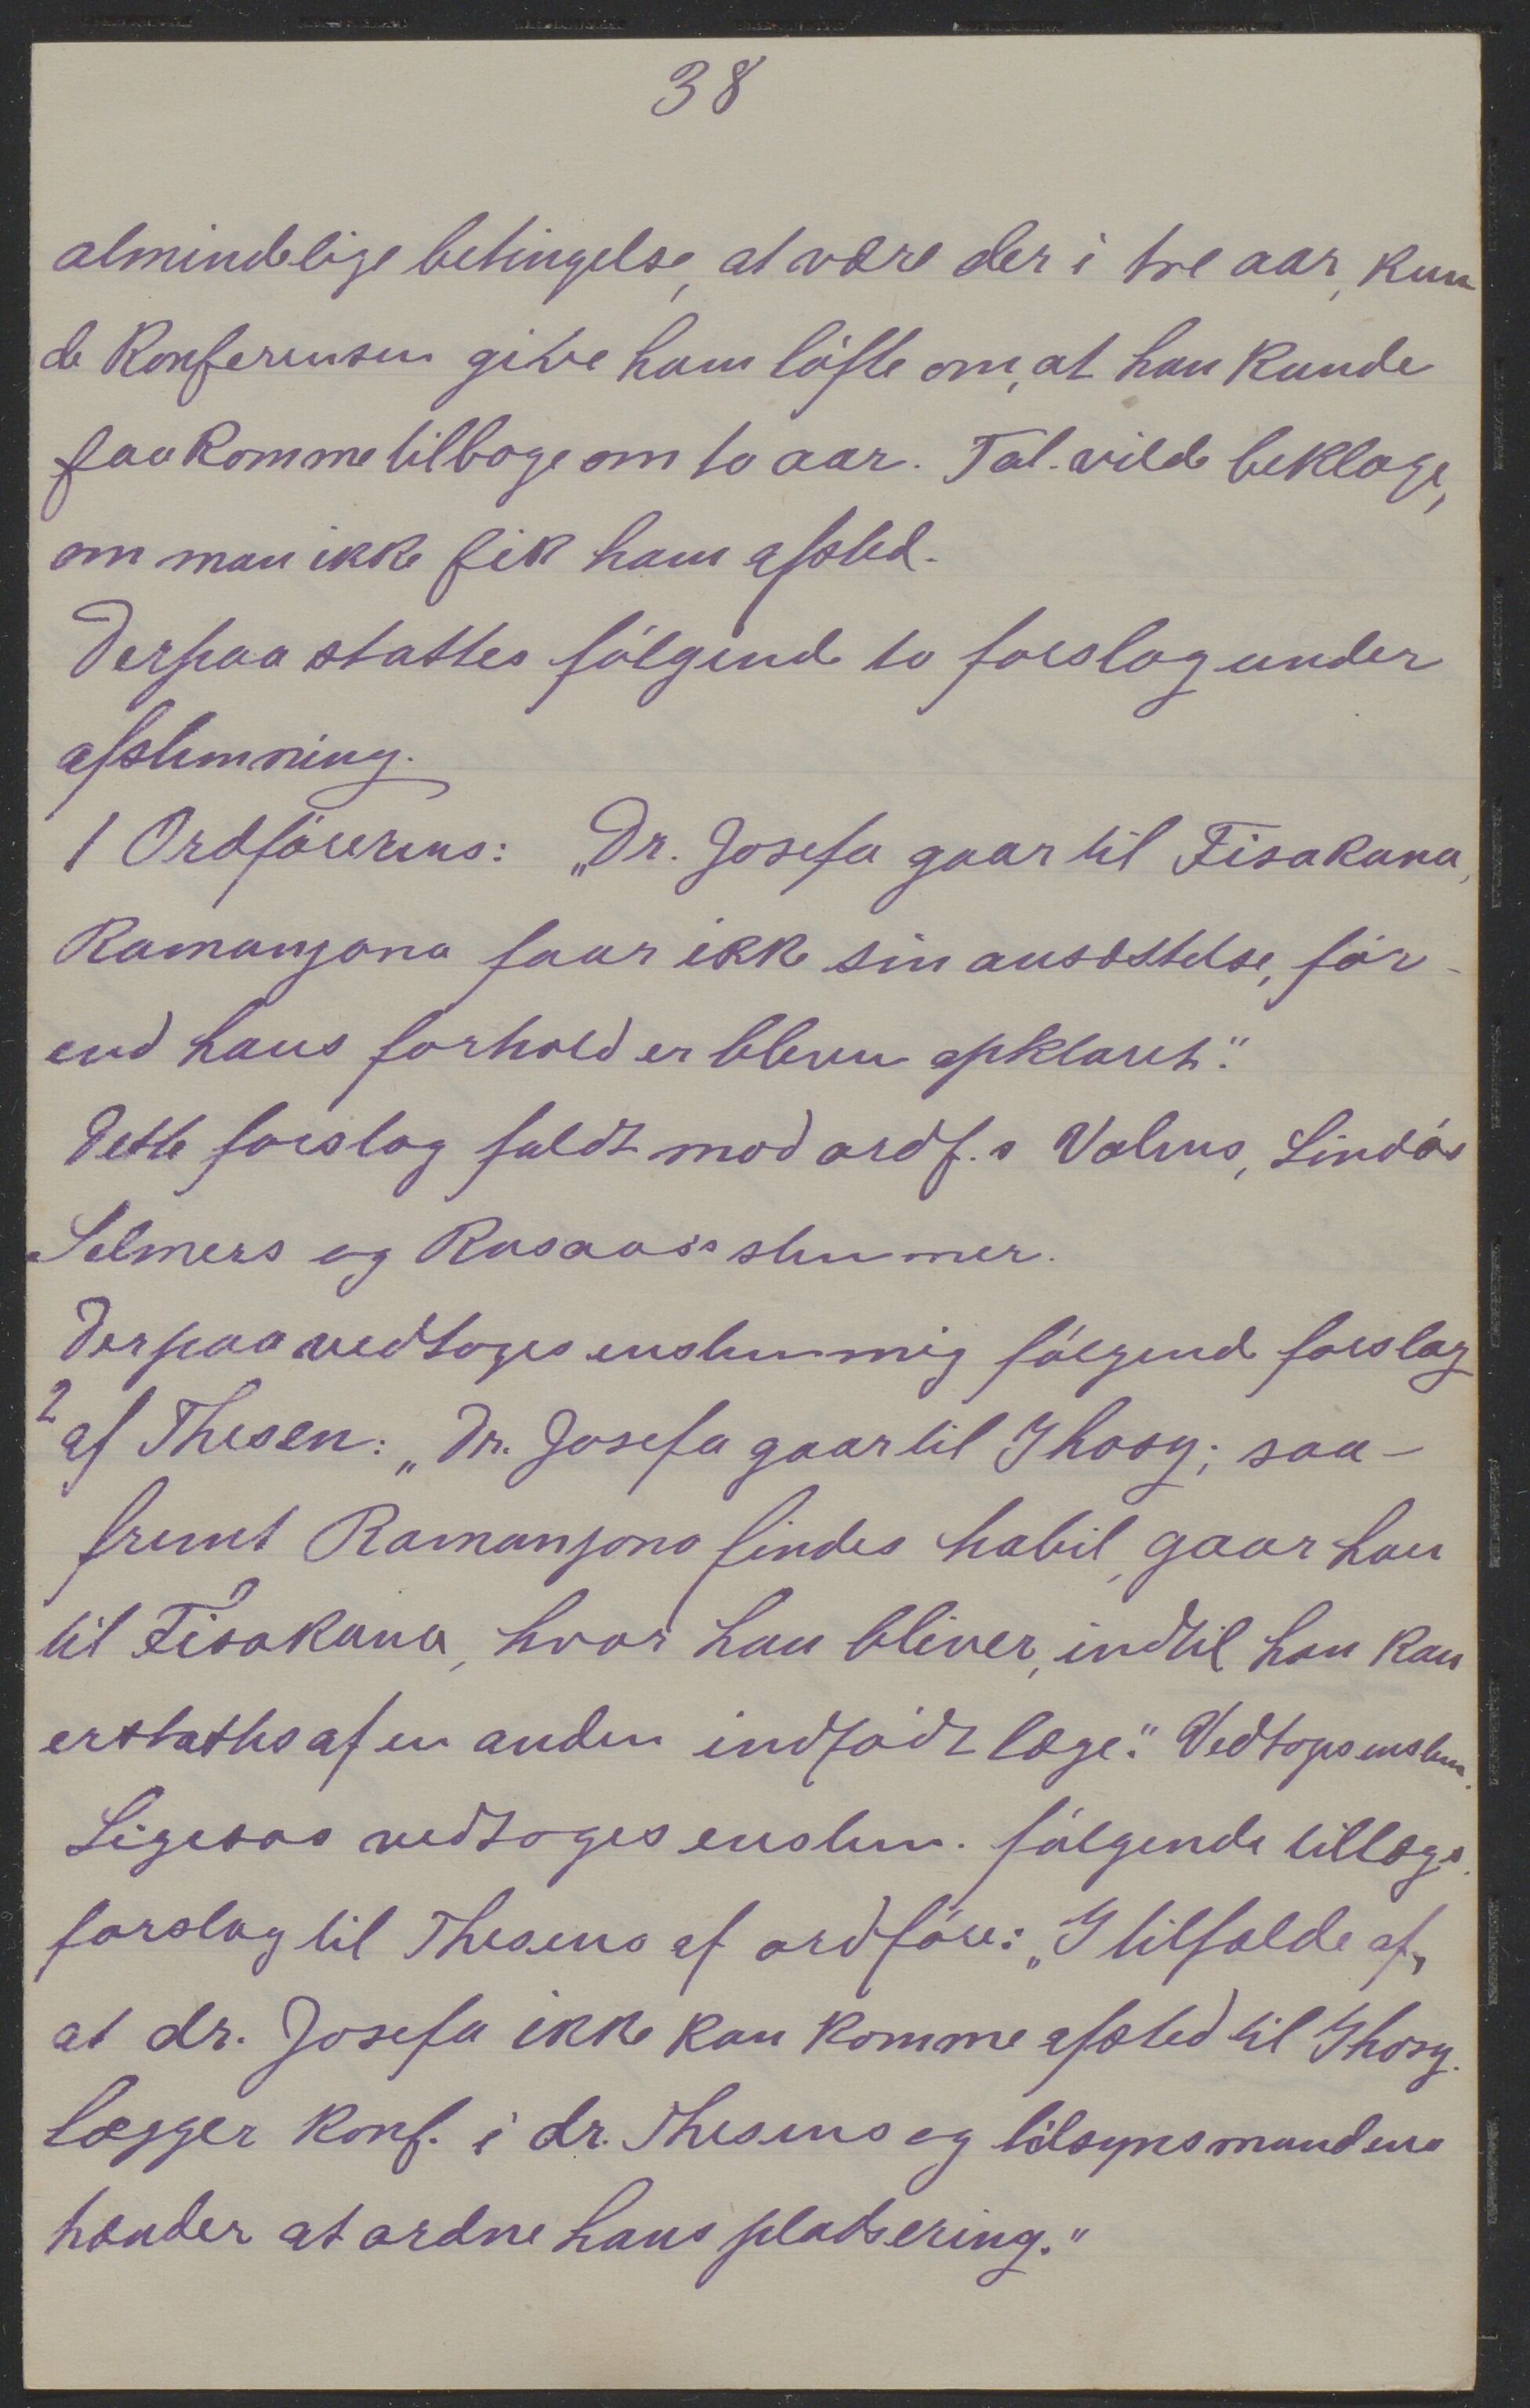 38
almindelige betingelse, at være der i tre aar, kun
de konferensen give ham löfte om, at han kunde
faa komme tilbage om to aar. Tal. vilde beklage,
om man ikke fik ham afsted.
Derpaa sattes fölgende to forslag under
afstemning.
1 Ordförerens: „Dr. Josefa gaar til Fisakana,
Ramanjona faar ikke sin ansættelse, för-
end hans forhold er bleven opklaret."
Dette forslag faldt mod ordf.s Valens, Lindös
Selmers og Rosaas's stemmer.
Derpaa vedtoges enstemmig fölgende forslag
2 af Thesen: „Dr. Josefa gaar til Ihosy; saa-
fremt Ramanjona findes habil, gaar han
til Fisakana, hvor han bliver, indtil han kan
erstattes af en anden indfödt læge." Vedtoges enstem.
Ligesaa vedtoges enstem. fölgende tillægs
forslag til Thesens af ordföre: „I tilfælde af,
at dr. Josefa ikke kan komme afsted til Ihosy.
lægger konf. i dr. Thesens og tilsynsmandens
hænder at ordne hans plasering."